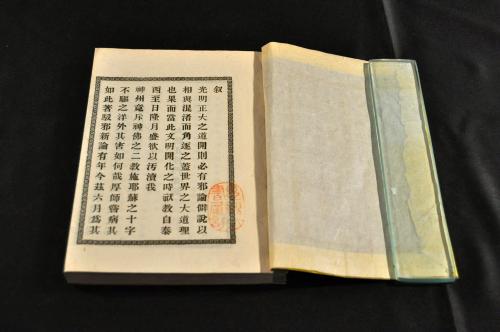 叙
光明正大之道開則必有邪論僻說以
相與混淆而角逐之蓋世界之大道理
也果而當此文明開化之時祅教自泰
西至日隆月盛欲以汚瀆我
神州竟斥神佛之二教施耶蘇之十字
不驅之洋外其害如何哉厚師嘗病其
如此著駁邪新論有年今茲六月爲其